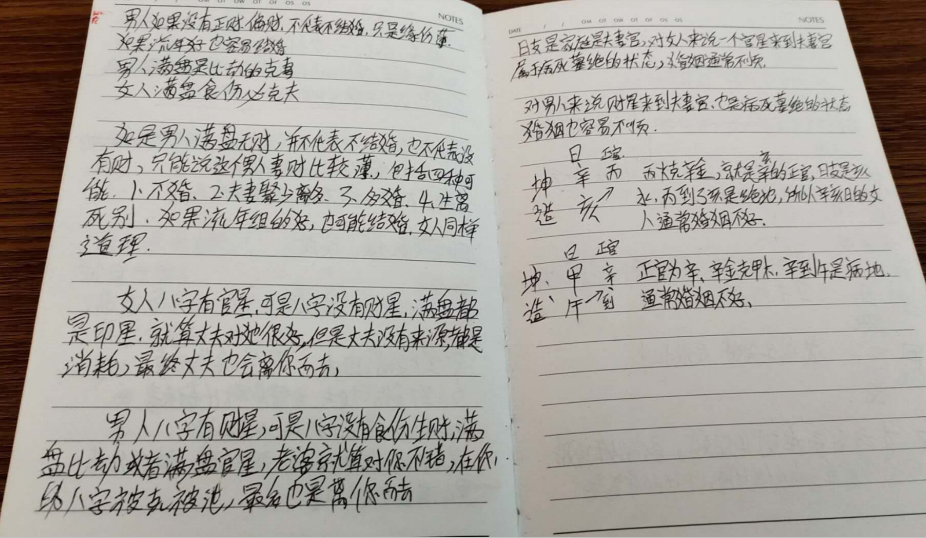 NOTES
男人如果没有正财偏财,不代表不结婚,只是缘份薄.
如果流年好也容易结婚
男人满盘是比劫的克妻
女人满盘食伤必克夫
如是男人满盘无财,并不代表不结婚,也不代表没
有财,只能说这个男人妻财比较薄,包括四种可
能.1.不婚、2.夫妻聚少离多、3.多婚、4.生离
死别.如果流年组的好,也可能结婚,女人同样
道理.
女人八字有官星,可是八字没有财星,满盘都
是印星.就算丈夫对她很好,但是丈夫没有来源,都是
消耗,最终丈夫也会离你而去,
男人八字有财星,可是八字没有食伤生财,满
盘比劫或者满盘官星,老婆就算对你不错,在你
八字被克被泄,最后也是离你而去
DATE
NOTES
日支是家庭是夫妻宫,对女人来说一个官星来到夫妻宫
属于病死墓绝的状态,婚姻通常不顺.
对男人来说财星来到夫妻宫,也是病死墓绝的状态
婚姻也容易不顺.
日 正官
坤 辛 丙 丙火克辛金,官就是辛的正官,日支是亥
造 亥 水,丙到了亥是绝地,所以辛亥日的女
人通常婚姻不好.
日 正官
坤 甲 辛 正官为辛,辛金克甲木,辛到午是病地.
造 午 通常婚姻不好.